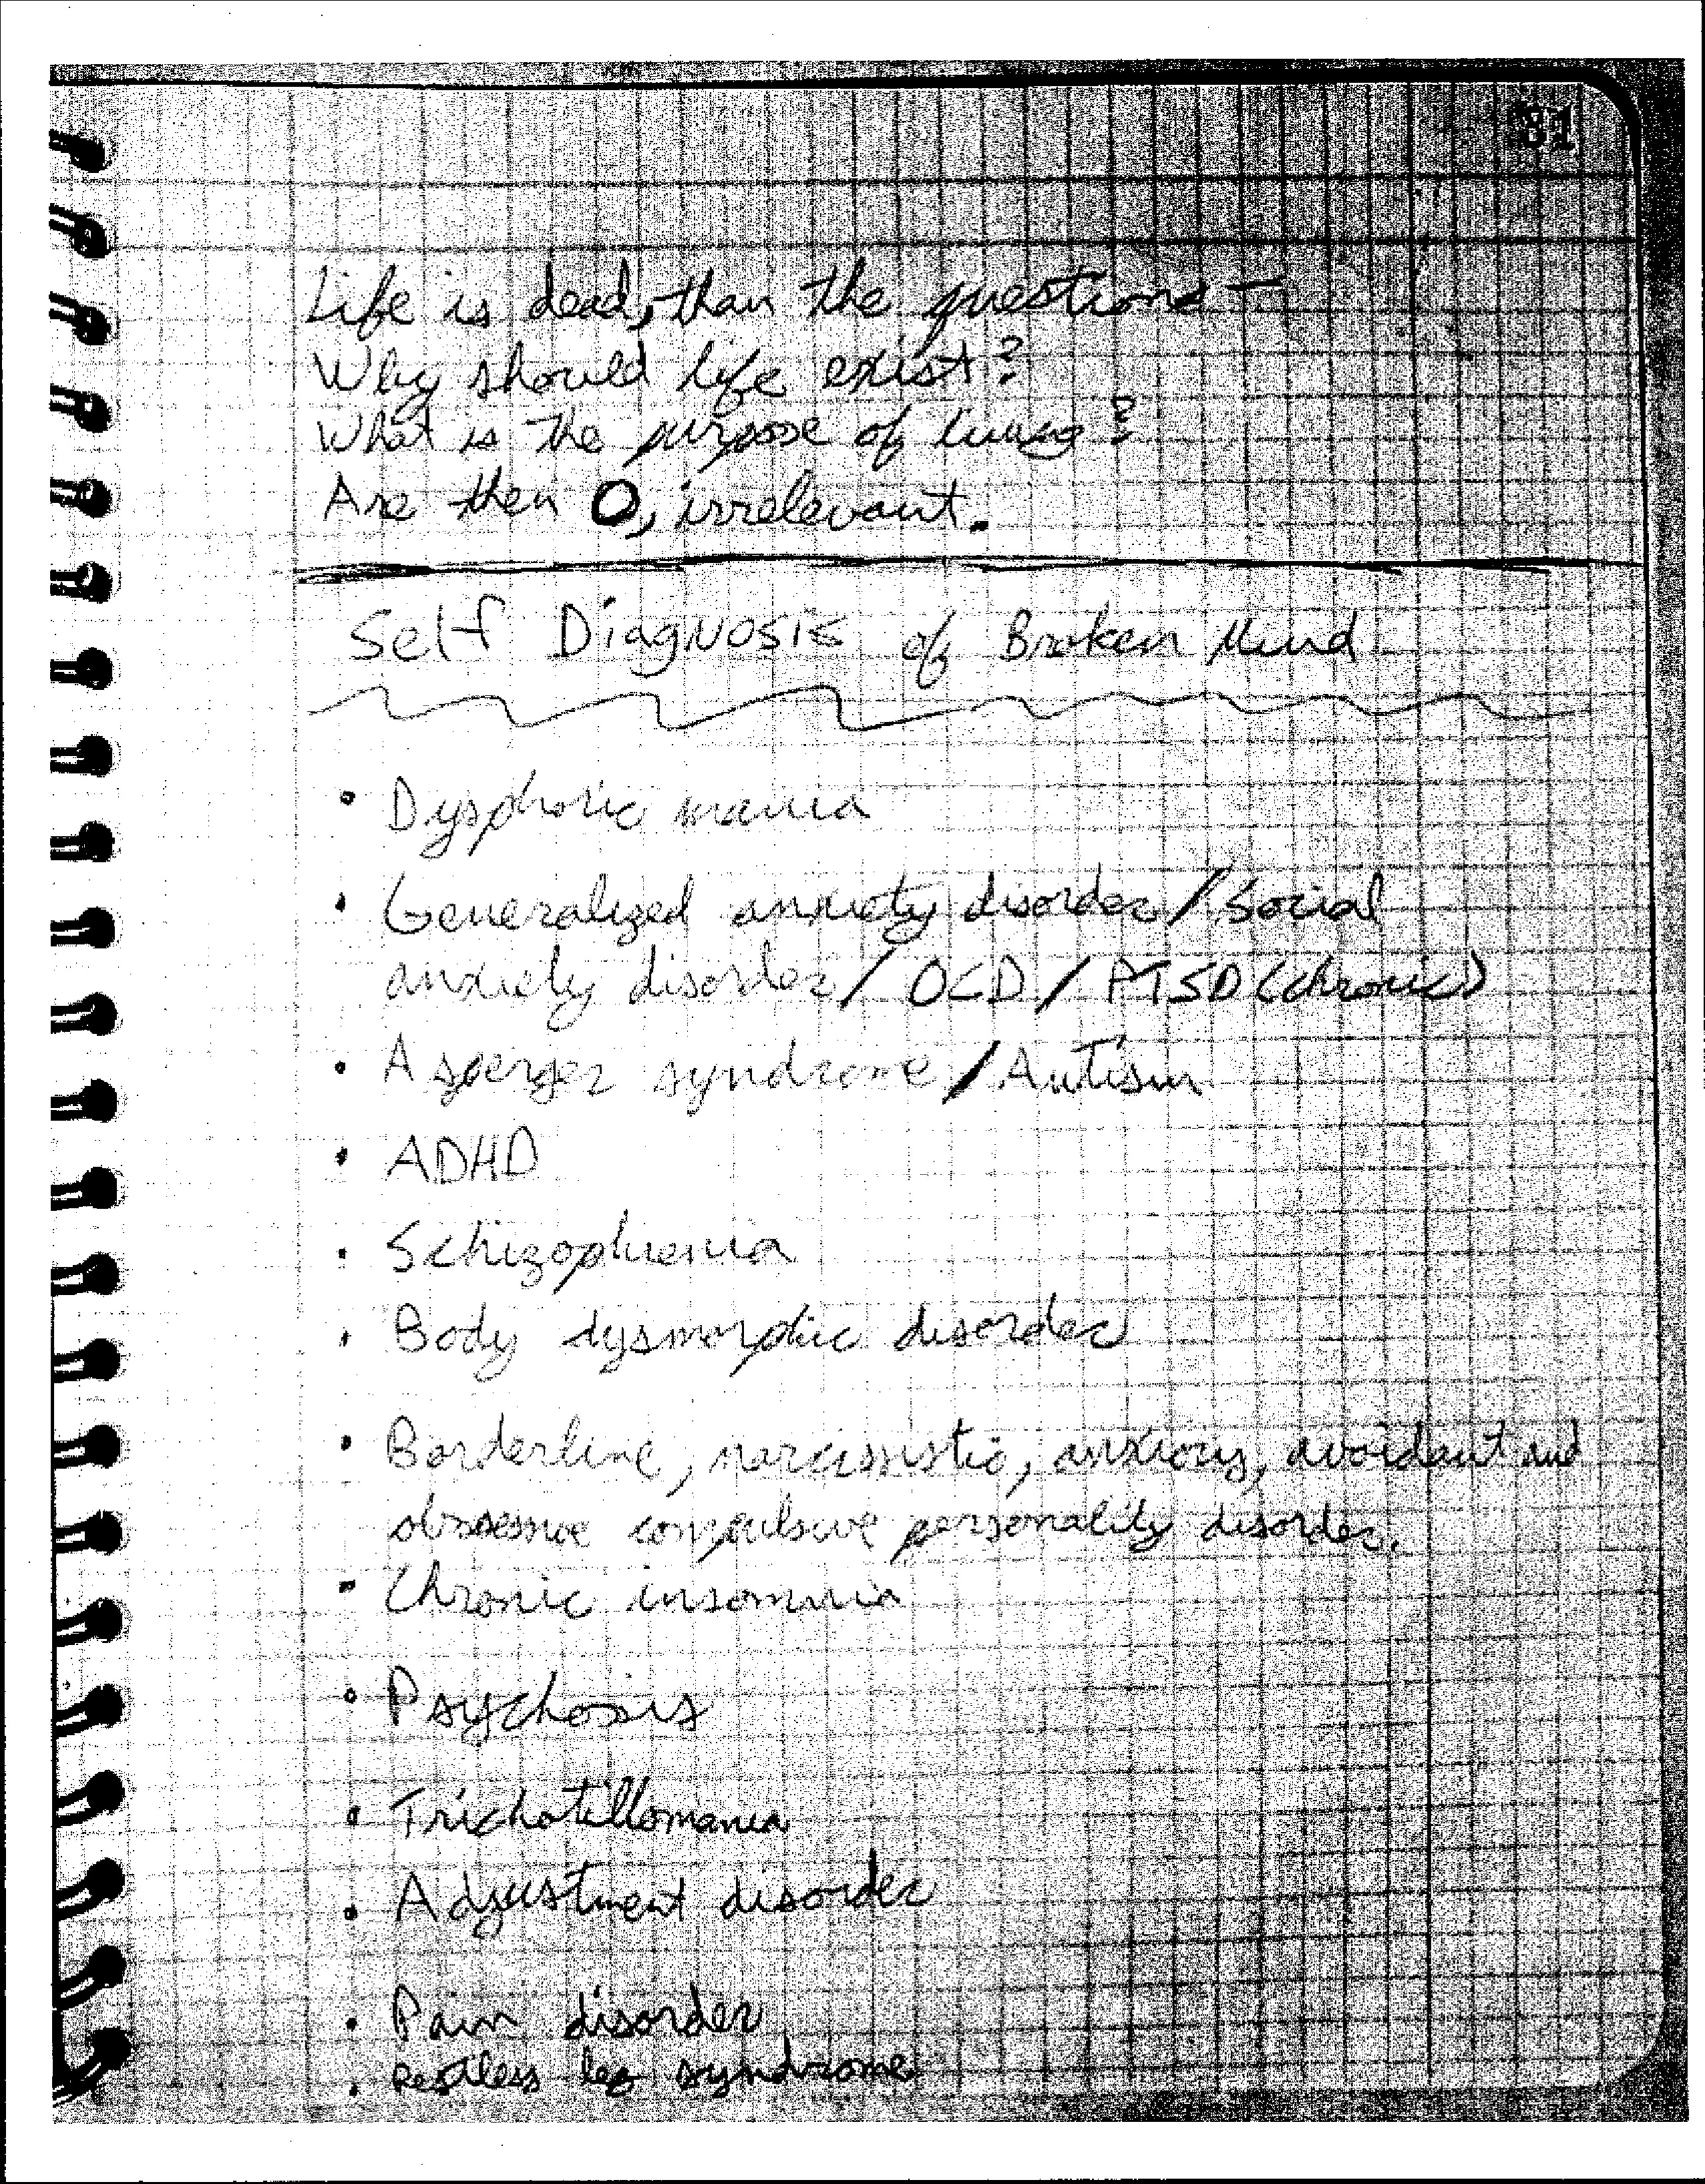 81
Life is dead, than the questions —
Why should life exist?
What is the purpose of living?
Are then 0, irrelevant.
Self Diagnosis of Broken Mind
• Dysphoric mania
• Generalized anxiety disorder / Social
anxiety disorder / OCD / PTSD (chronic)
• Asperger syndrome / Autism
• ADHD
• Schizophrenia
• Body dysmorphic disorder
• Borderline, narcissistic, anxious, avoidant and
obsessive compulsive personality disorder.
• Chronic insomnia
• Psychosis
• Trichotillomania
• Adjustment disorder
• Pain disorder
• Restless leg syndrome